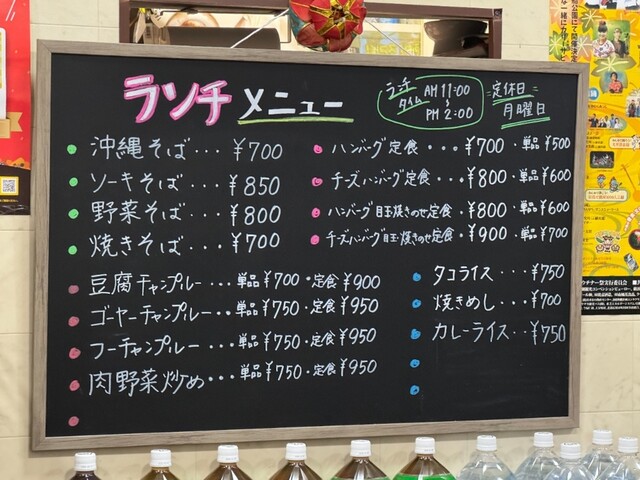 ランチ メニュー
ランチタイム AM 11:00 〜 PM 2:00
定休日 月曜日
沖縄そば・・・¥700
ソーキそば・・・¥850
野菜そば・・・¥800
焼きそば・・・¥700
豆腐チャンプルー・・・単品¥700・定食¥900
ゴーヤーチャンプルー・・・単品¥750・定食¥950
フーチャンプルー・・・単品¥750・定食¥950
肉野菜炒め・・・単品¥750・定食¥950
ハンバーグ定食・・・¥700・単品¥500
チーズハンバーグ定食・・・¥800・単品¥600
ハンバーグ目玉焼きのせ定食・¥800・単品¥600
チーズハンバーグ目玉焼きのせ定食・¥900・単品¥700
タコライス・・・¥750
焼きめし・・・¥700
カレーライス・・¥750